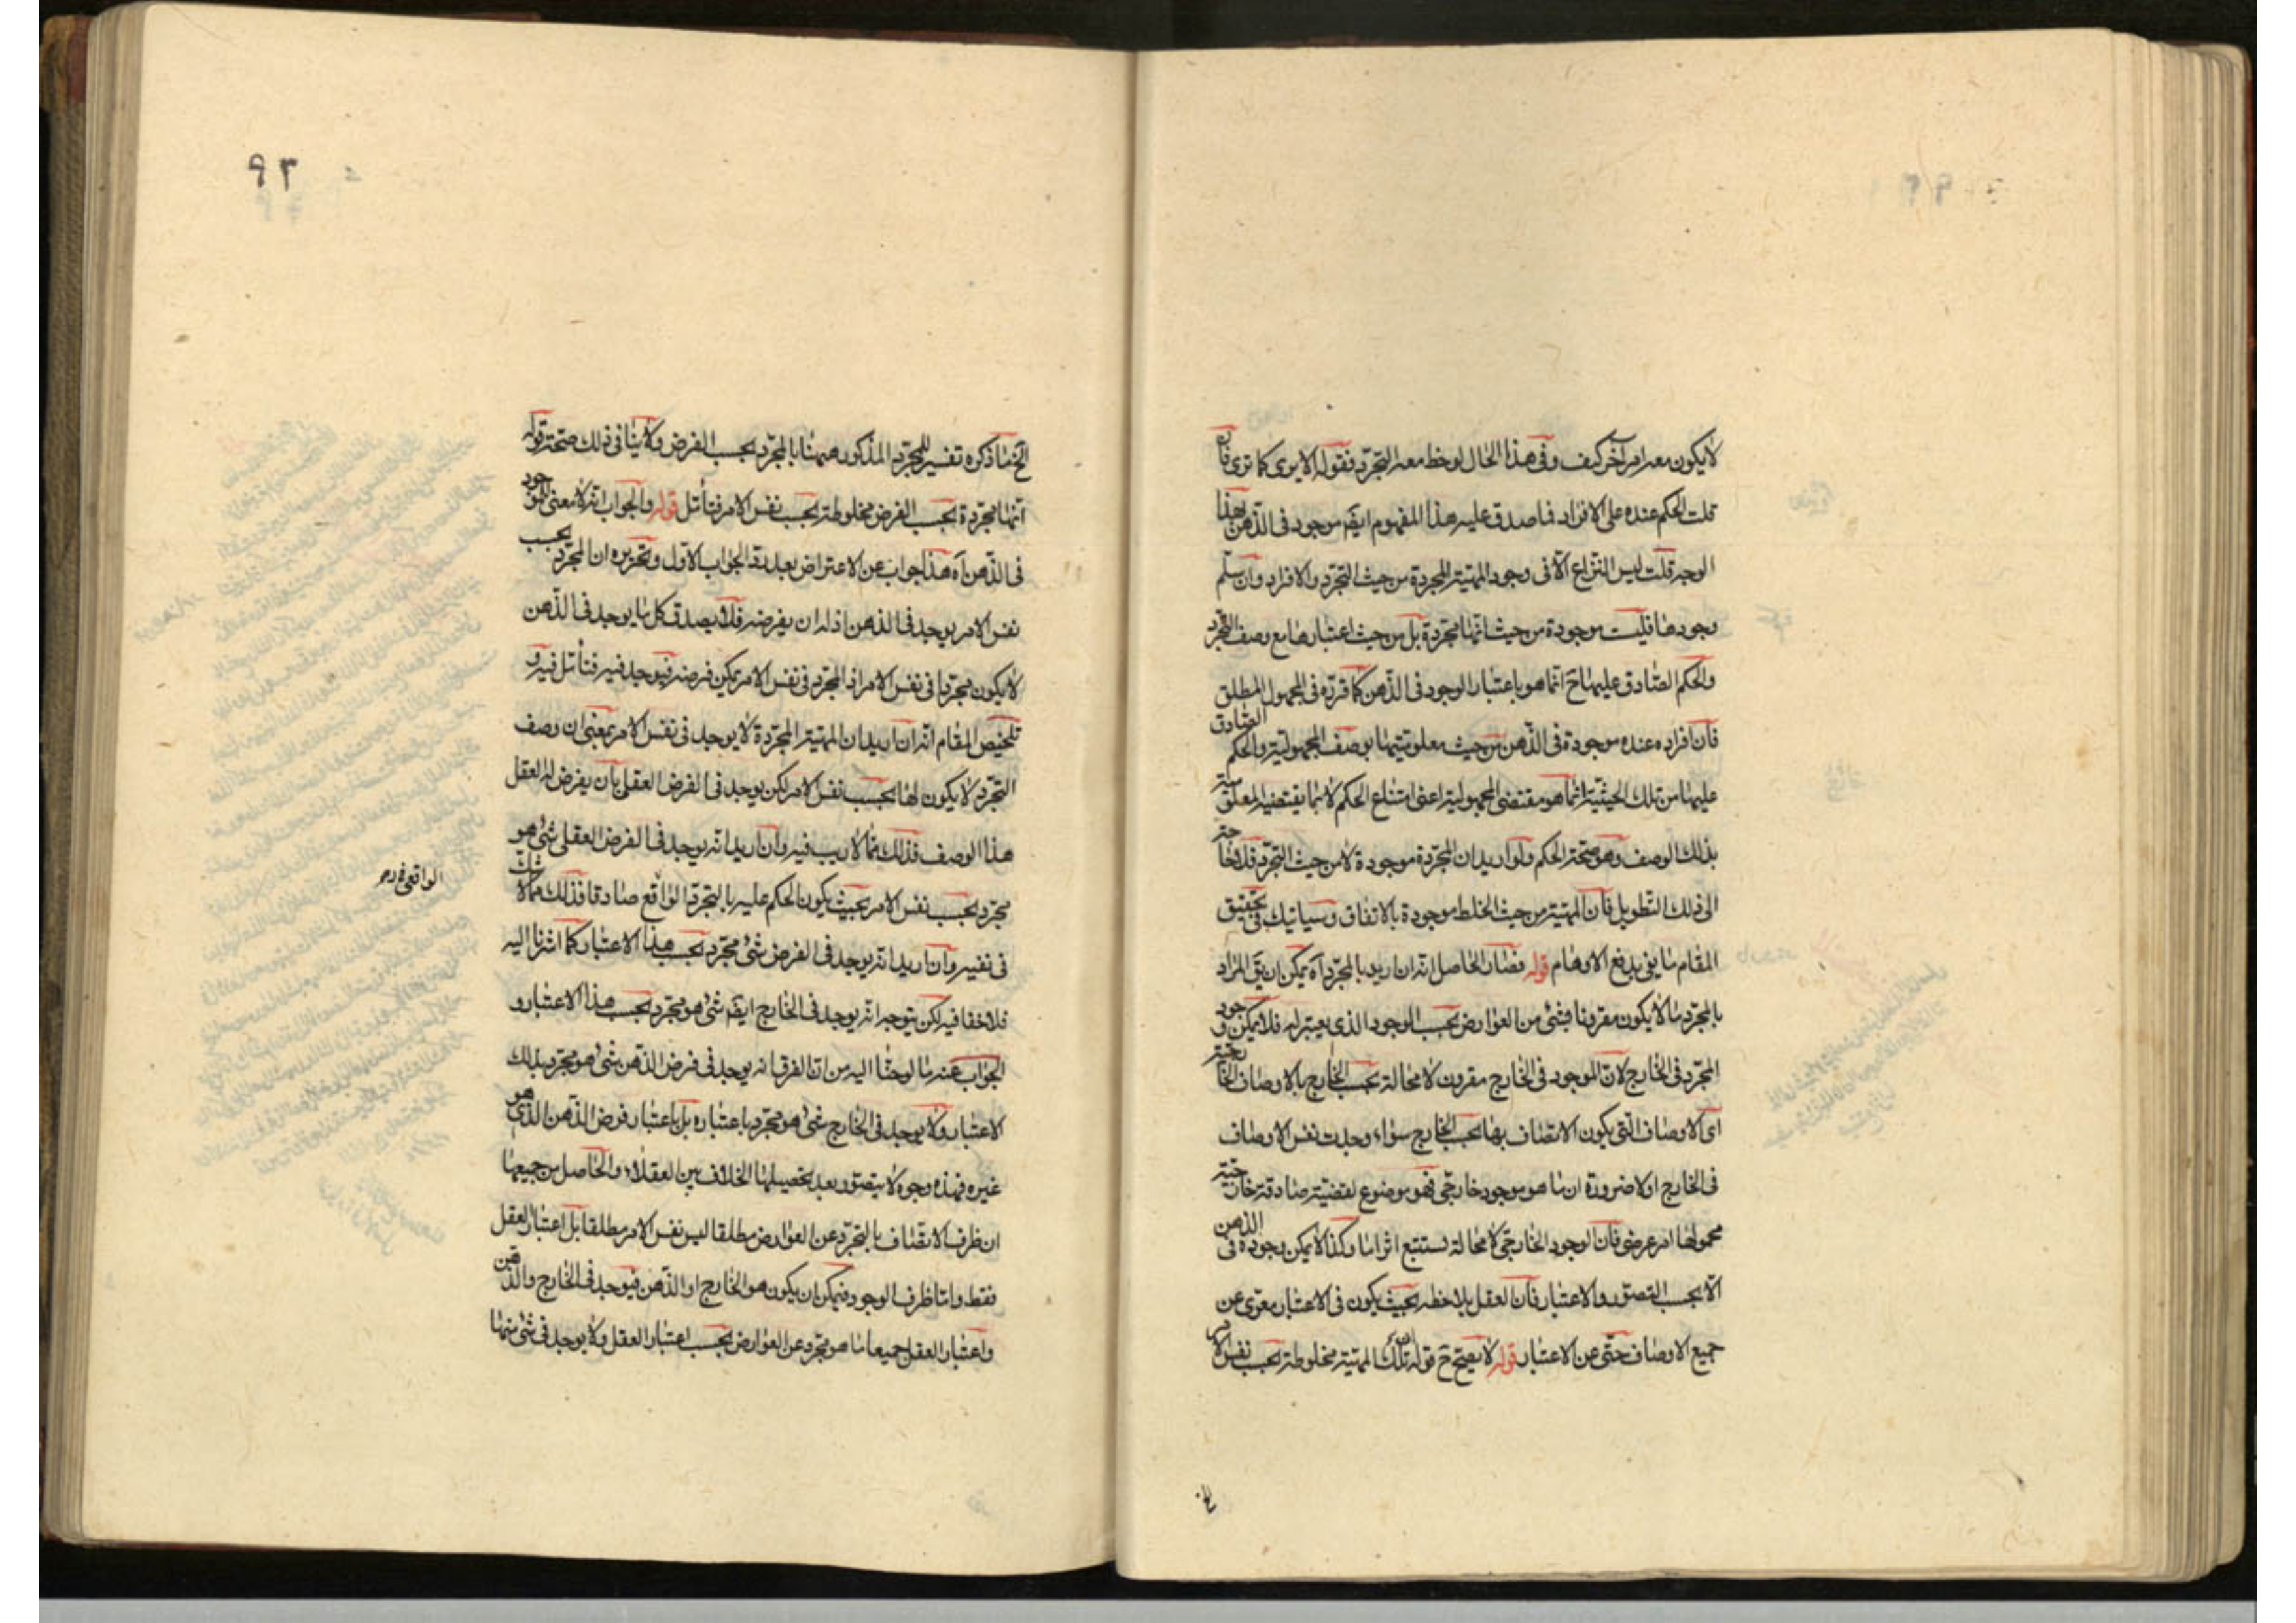 لا يكون معه امر آخر كيف وفى هذا الحال لوحظ معه التجرّد فقوله الا يرى كما ترى فان
قلت الحكم عنده على الافراد فما صدق عليه هذا المفهوم ايضا موجود فى الذّهن بهذا
الوجه قلت ليس النّزاع الّا فى وجود المهيّة المجردة من حيث التجرّد والافراد وان سلّم
وجودها فليست موجودة من حيث انّها مجرّدة بل من حيث اعتبارها مع وصف التجرّد
والحكم الصّادق عليها ح انّما هو باعتبار الوجود فى الذّهن كما قرّره فى المجهول المطلق
فانّ افراده عنده موجودة فى الذّهن من حيث معلوميّتها بوصف المجهوليّة والحكم الصّادق
عليها من تلك الحيثيّة انّما هو مقتضى المجهولية اعنى امتناع الحكم لا ما يقتضيه المعلوميّة
بذلك الوصف وهو صحّة الحكم ولو اريد ان المجرّدة موجودة لا من حيث التجرّد فلا حاجة
الى ذلك التّطويل فانّ المهيّة من حيث الخلط موجودة بالاتفاق وسياتيك فى تحقيق
المقام ما يفى بدفع الاوهام قوله فصار الحاصل انّه ان اريد بالمجرّد آه يمكن ان يق المراد
بالمجرّد ما لا يكون مقرونا بشئ من العوارض بحسب الوجود الذى يعتبر له فلا يمكن وجود
المجرّد فى الخارج لانّ الموجود فى الخارج مقرون لا محالة بحسب الخارج بالاوصاف الخارجيّة
اى الاوصاف التى يكون الاتصاف بها بحسب الخارج سواء وجدت نفس الاوصاف
فى الخارج او لا ضرورة ان ما هو موجود خارجى فهو موضوع لقضيّة صادقة خارجيّة
محمولها امر عرضى فانّ الوجود الخارجى لا محالة يستتبع اثرا ما وكذا لا يمكن وجوده فى الذهن
الّا بحسب التصوّر والاعتبار فانّ العقل يلاحظه بحيث يكون فى الاعتبار معرّى عن
جميع الاوصاف حتّى عن الاعتبار قوله لا يصحّ ح قوله تلك المهيّة مخلوطة بحسب نفس الامر
الخ
٩٢
الخ ما ذكره تفسير للمجرّد المذكور ههنا بالمجرّد بحسب الفرض ولا ينافى ذلك صحّة قوله
انّها مجرّدة بحسب الفرض مخلوطة بحسب نفس الامر فتأمّل قوله والجواب انّه لا معنى للموجود
فى الذّهن آه هذا جواب عن الاعتراض بعد ردّ الجواب الاوّل وتحريره ان المجرّد بحسب
نفس الامر يوجد فى الذهن اذ له ان يفرضه فلا يصدق كل ما يوجد فى الذّهن
لا يكون مجرّدا فى نفس الامر اذ المجرّد فى نفس الامر يمكن فرضه فيوجد فيه فتأمّل فيه و
تلخيص المقام انّه ان اريد ان المهيّة المجرّدة لا يوجد فى نفس الامر بمعنى ان وصف
التجرّد لا يكون لها بحسب نفس الامر لكن يوجد فى الفرض العقلى بان يفرض له العقل
هذا الوصف فذلك ممّا لا ريب فيه وان اريد انّه يوجد فى الفرض العقلى شئ هو
مجرّد بحسب نفس الامر بحيث يكون الحكم عليه بالتجرّد الواقع صادقا فذلك ممّا لا شكّ
الواقعى
فى نفيه وان اريد انّه يوجد فى الفرض شئ مجرّد بحسب هذا الاعتبار كما اشرنا اليه
فلا خفا فيه لكن يتوجه انّه يوجد فى الخارج ايضا شئ هو مجرّد بحسب هذا الاعتبار و
الجواب عنه ما لوحنا اليه من انّ الفرق انه يوجد فى فرض الذّهن شئ هو مجرّد بذلك
الاعتبار ولا يوجد فى الخارج شئ هو مجرّد باعتباره بل باعتبار فرض الذّهن الذى هو
غيره فهذه وجوه لا يتصوّر بعد تحصيلها الخلاف بين العقلاء والحاصل من جميعها
ان ظرف الاتّصاف بالتجرّد عن العوارض مطلقا ليس نفس الامر مطلقا بل اعتبار العقل
فقط وامّا ظرف الوجود فيمكن ان يكون هو الخارج او الذّهن فيوجد فى الخارج والذّهن
واعتبار العقل جميعا ما هو مجرّد عن العوارض بحسب اعتبار العقل ولا يوجد فى شئ منها